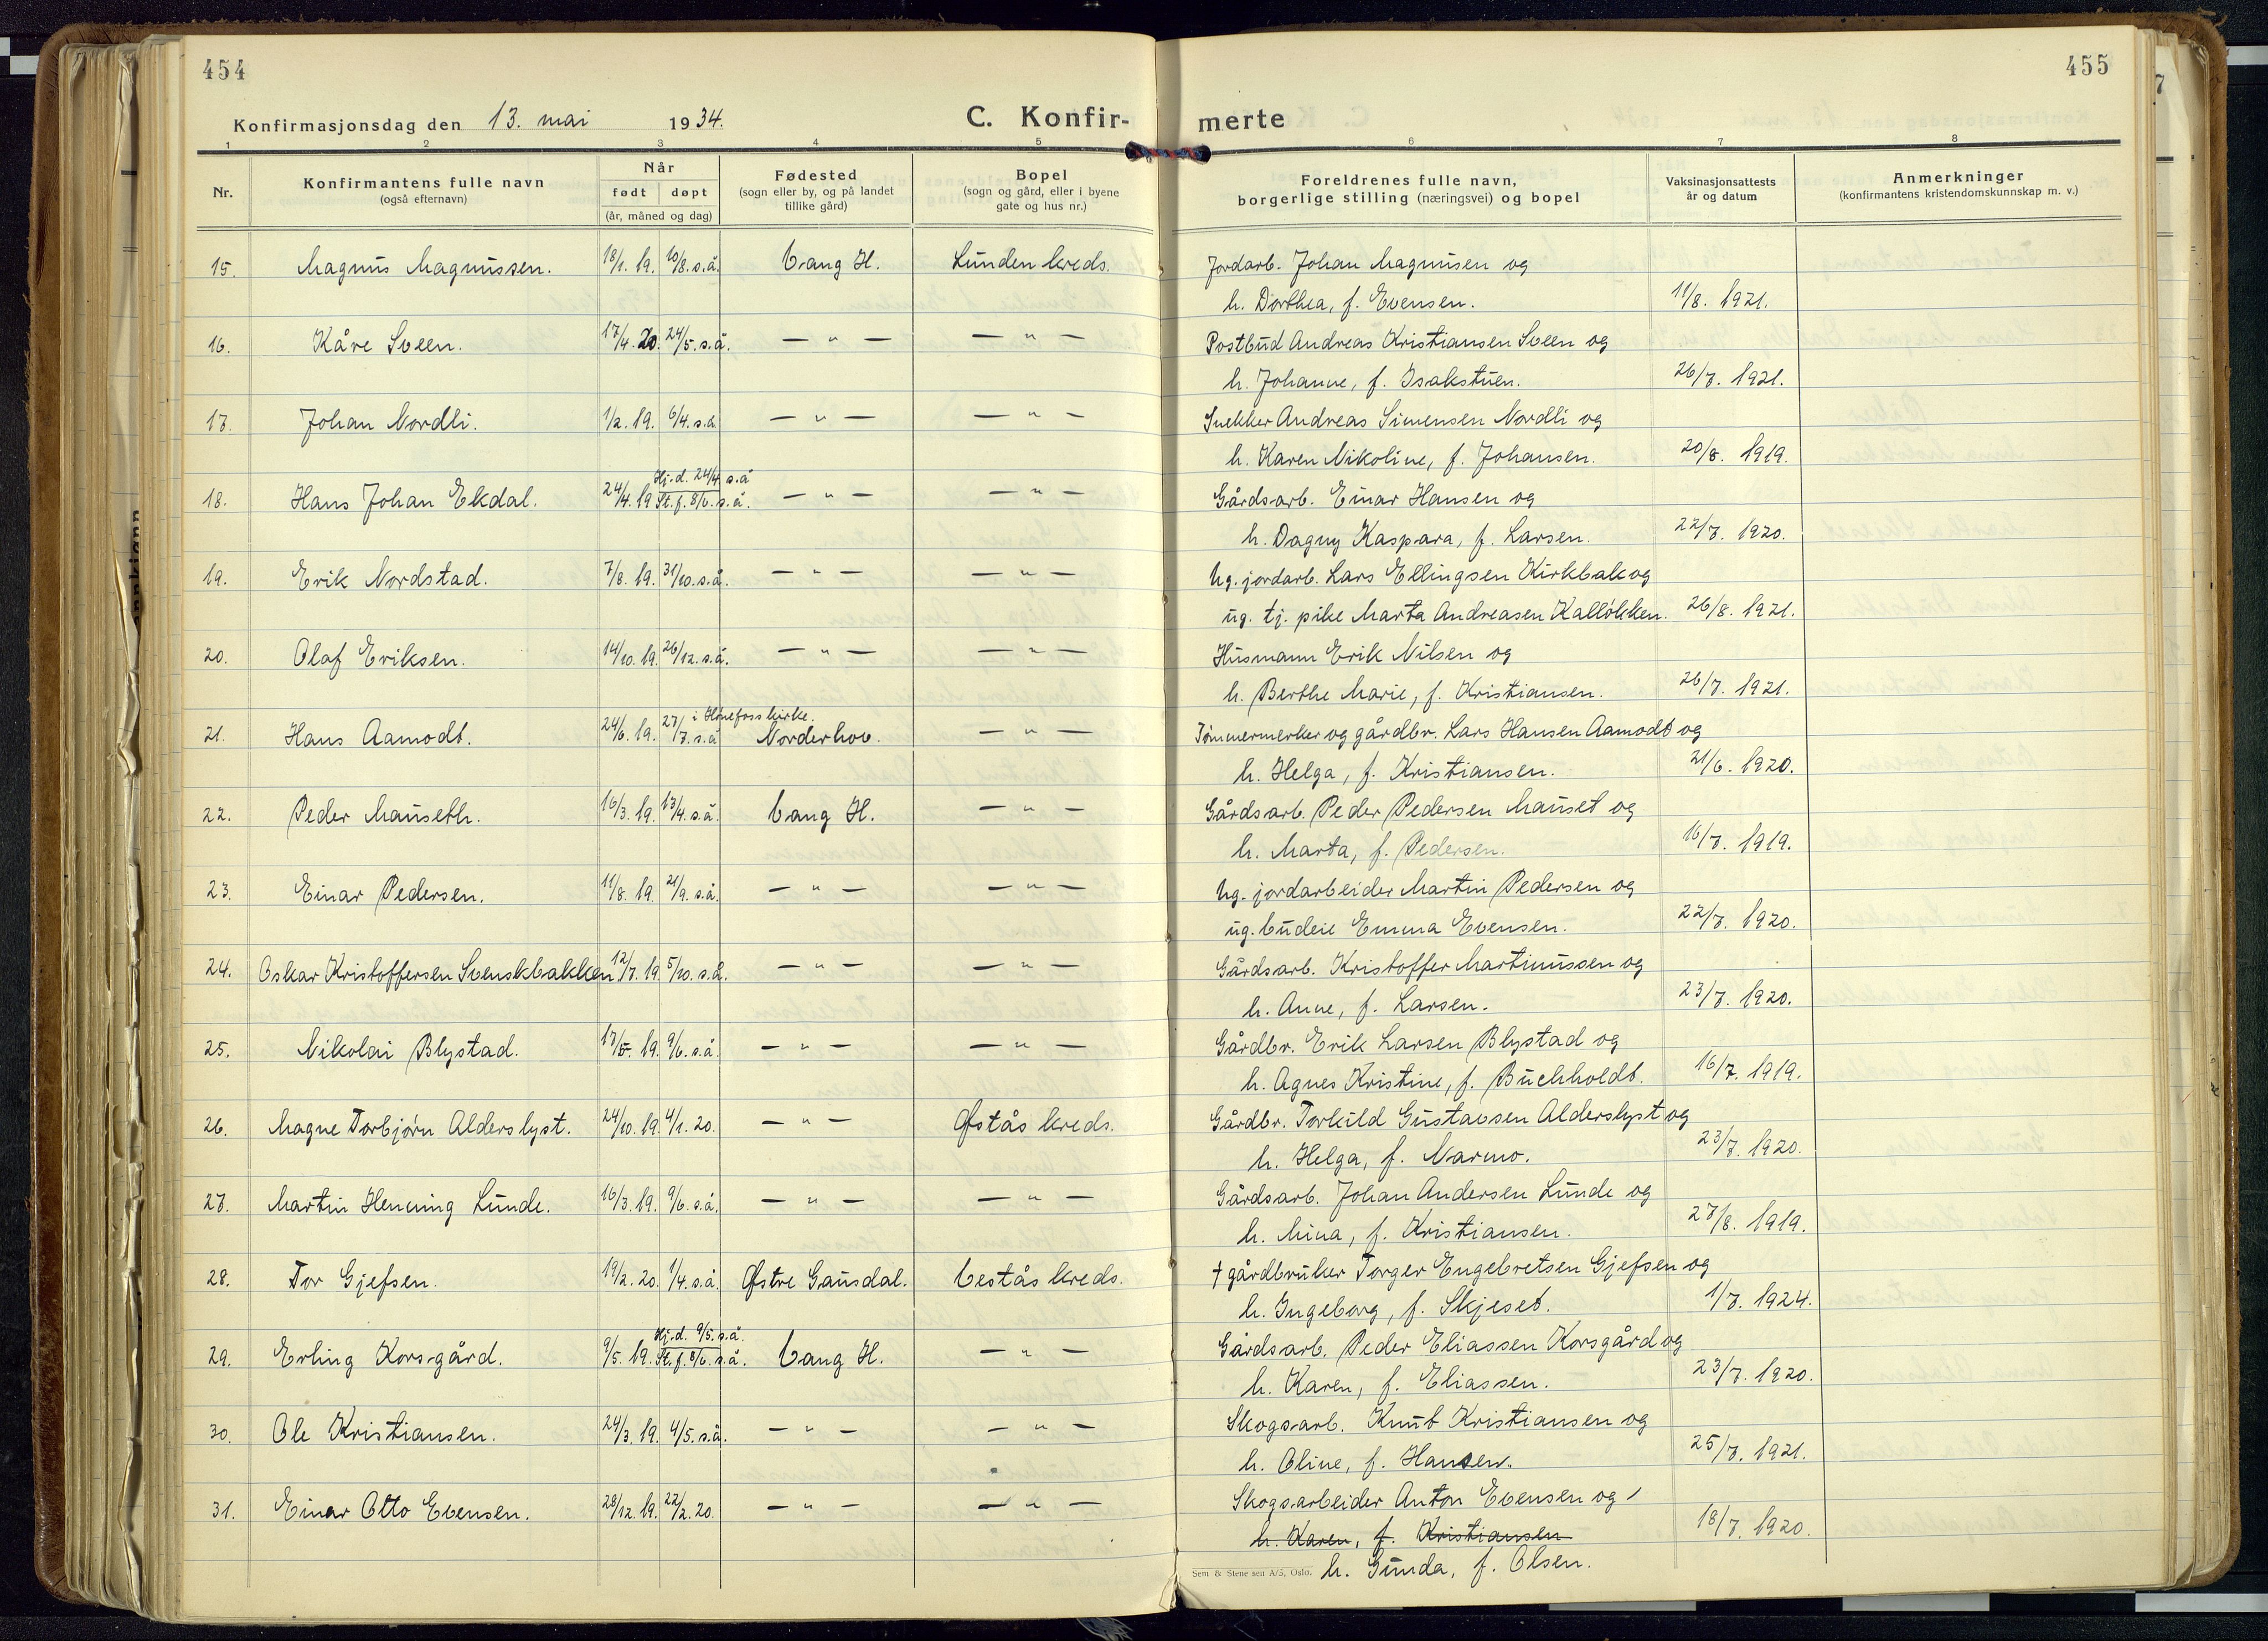 454
455
Konfirmasjonsdag den 13. mai 1934.
C. Konfir-
merte
1 2 3 4 5 6 7 8
Nr.
Konfirmantens fulle navn
(også efternavn)
Når
født døpt
(år, måned og dag)
Fødested
(sogn eller by, og på landet
tillike gård)
Bopel
(sogn og gård, eller i byene
gate og hus nr.)
Foreldrenes fulle navn,
borgerlige stilling (næringsvei) og bopel
Vaksinasjonsattests
år og datum
Anmerkninger
(konfirmantens kristendomskunnskap m. v.)
15. Magnus Magnussen. 18/1. 19. 10/8. s.å. Vang H. Lunden kreds. Jordarb. Johan Magnusen og
h. Dorthea, f. Evensen. 11/8. 1921.
16. Kåre Sveen. 17/4. 20. 24/5. s.å. — " — — " — Postbud Andreas Kristiansen Sveen og
h. Johanne, f. Isakstuen. 26/7. 1921.
17. Johan Nordli. 1/2. 19. 6/4. s.å. — " — — " — Snekker Andreas Simensen Nordli og
h. Karen Nikoline, f. Johansen. 20/8. 1919.
Hj.d. 24/4 s.å
18. Hans Johan Ekdal. 24/4. 19 St.f. 8/6. s.å. — " — — " — Gårdsarb. Einar Hansen og
h. Dagny Kaspara, f. Larsen. 22/7. 1920.
19. Erik Nordstad. 7/8. 19. 31/10. s.å. — " — — " — Ug. jordarb. Lars Ellingsen Kirkbak og
ug. tj. pike Marta Andreasen Kalløkken. 26/8. 1921.
20. Olaf Eriksen. 14/10. 19. 26/12. s.å. — " — — " — Husmann Erik Nilsen og
h. Berthe Marie, f. Kristiansen. 26/7. 1921.
i Hønefoss kirke.
21. Hans Aamodt. 24/6. 19. 27/7. s.å Norderhov. — " — Tømmermerker og gårdbr. Lars Hansen Aamodt og
h. Helga, f. Kristiansen. 21/6. 1920.
22. Peder Mauseth. 16/3. 19. 13/4. s.å. Vang H. — " — Gårdsarb. Peder Pedersen Mauset og
h. Marta, f. Pedersen. 16/7. 1919.
23. Einar Pedersen. 11/8. 19. 21/9. s.å. — " — — " — Ug. jordarbeider Martin Pedersen og
ug. budeie Emma Evensen. 22/7. 1920.
24. Oskar Kristoffersen Svenskbakken 12/7. 19. 5/10. s.å. — " — — " — Gårdsarb. Kristoffer Martinussen og
h. Anne, f. Larsen. 23/7. 1920.
25. Nikolai Blystad. 17/5. 19. 9/6. s.å. — " — — " — Gårdbr. Erik Larsen Blystad og
h. Agnes Kristine, f. Buchholdt. 16/7. 1919.
26. Magne Torbjørn Alderslyst. 24/10. 19. 4/1. 20. — " — Østås kreds. Gårdbr. Torkild Gustavsen Alderslyst og
h. Helga, f. Narmo. 23/7. 1920.
27. Martin Henning Lunde. 16/3. 19. 9/6. s.å. — " — — " — Gårdsarb. Johan Andersen Lunde og
h. Mina, f. Kristiansen. 27/8. 1919.
28. Tor Gjefsen. 19/2. 20. 1/4. s.å. Østre Gausdal. Vestås kreds. † gårdbruker Torger Engebretsen Gjefsen og
h. Ingeborg, f. Skjeset. 1/7. 1924.
Hj.d. 9/5. s.å.
29. Erling Korsgård. 9/5. 19. St.f. 8/6. s.å. Vang H. — " — Gårdsarb. Peder Eliassen Korsgård og
h. Karen, f. Eliassen. 23/7. 1920.
30. Ole Kristiansen. 24/3. 19. 4/5. s.å. — " — — " — Skogsarb. Knut Kristiansen og
h. Oline, f. Hansen. 25/7. 1921.
31. Einar Otto Evensen. 28/12. 19. 22/2. 20. — " — — " — Skogsarbeider Anton Evensen og
h. Karen, f. Kristiansen 18/7. 1920.
h. Gunda, f. Olsen.
Sem & Stenersen A/S, Oslo.